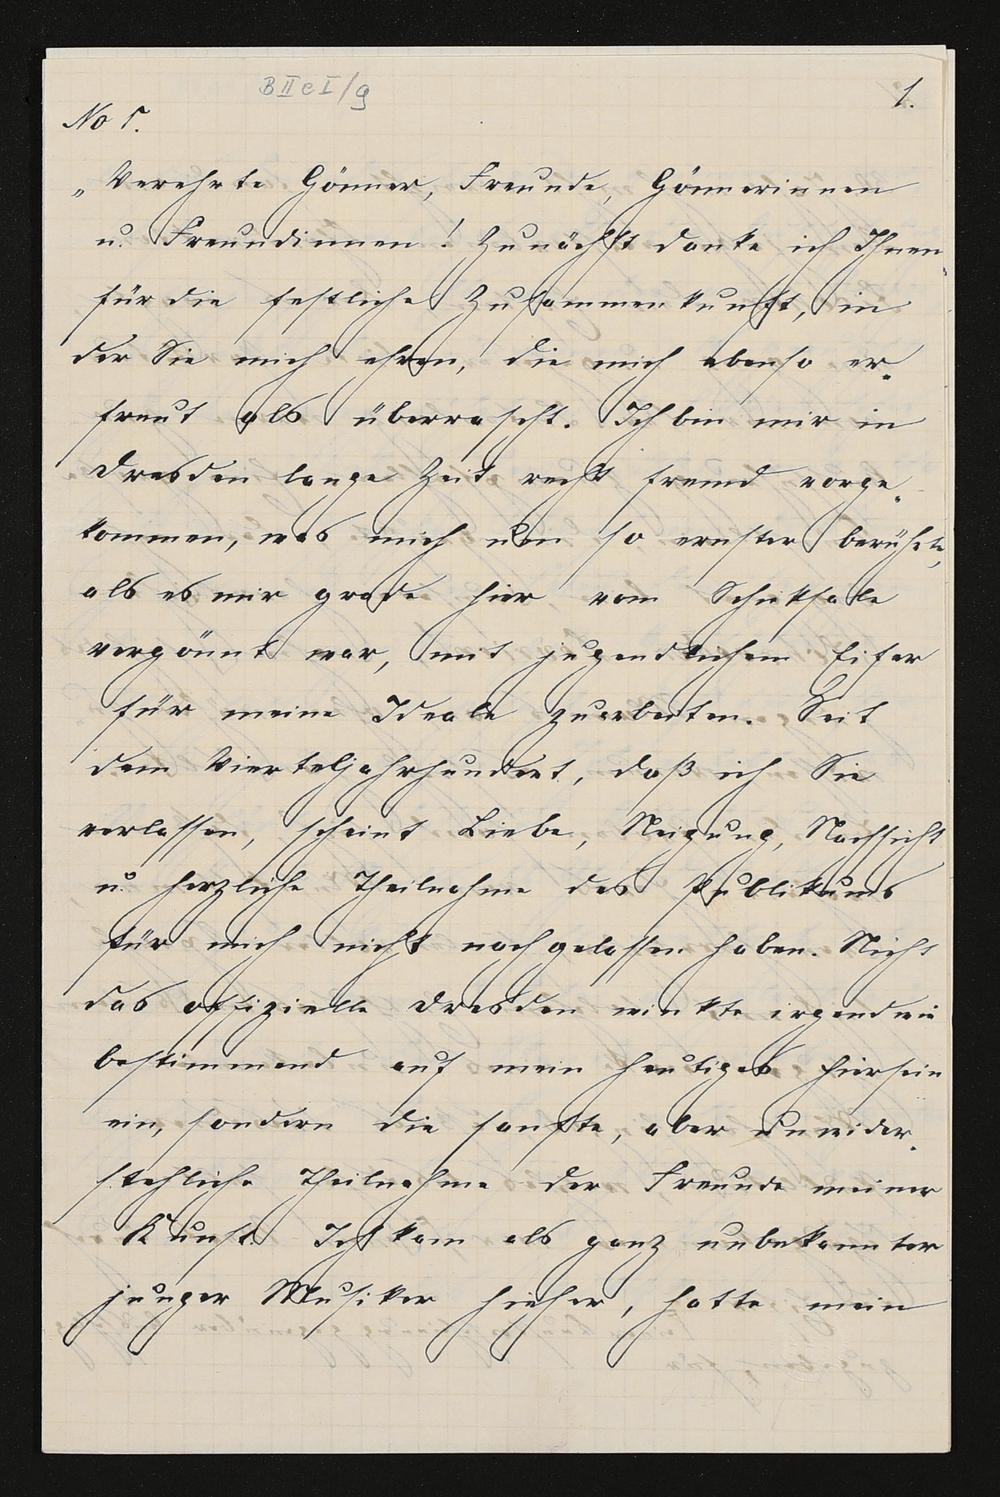 B II e I/g
1.
No 5.
„Verehrte Gönner, Freunde, Gönnerinnen
u. Freundinnen! Zunächst danke ich Ihnen
für die festliche Zusammenkunft, in
der Sie mich ehren, die mich ebenso er-
freut als überrascht. Ich bin mir in
Dresden lange Zeit recht fremd vorge-
kommen, was mich um so ernster berührte,
als es mir grade hier vom Schicksale
vergönnt war, mit jugendlichem Eifer
für meine Ideale zu arbeiten. Seit
dem Vierteljahrhundert, daß ich Sie
verlassen, scheint Liebe, Neigung, Nachsicht
u. herzliche Theilnahme des Publikums
für mich nicht nachgelassen haben. Nicht
das offizielle Dresden winkte irgendwie
bestimmend auf mein heutiges Hiersein
ein, sondern die sanfte, aber unwider-
stehliche Theilnahme der Freunde meiner
Kunst. Ich kam als ganz unbekannter
junger Musiker hieher, hatte mein